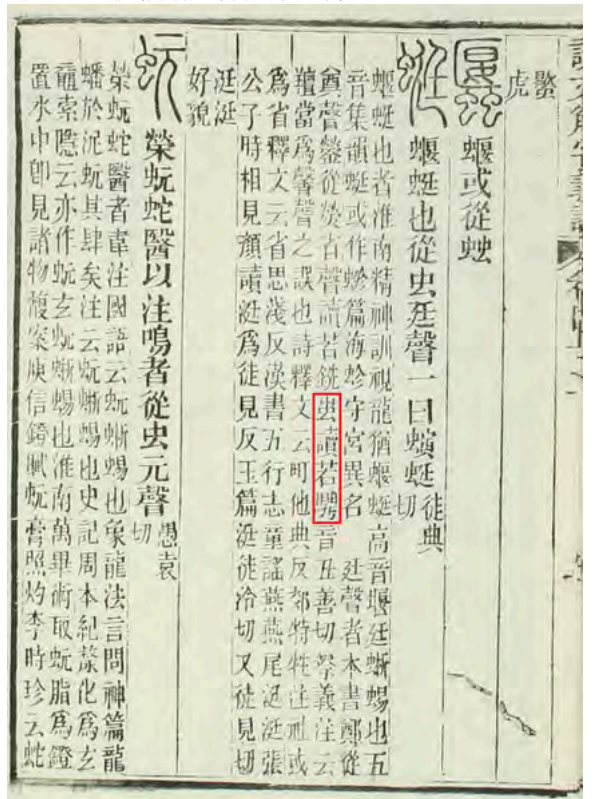 虎
蝘或從䖵
蜓
蝘蜓也從虫廷聲一曰螾蜓徒典切
蝘蜓也者淮南精神訓視龍猶蝘蜓高音堰廷蜥蜴也五
音集韻蜓或作蛉篇海蛉守宮異名 廷聲者本書鄭從
奠聲罃從熒省聲讀若銑䖝讀若騁音丑善切祭義注云
羶當爲馨聲之誤也詩釋文云町他典反郊特牲注祇或
爲省釋文云省思淺反漢書五行志童謠燕燕尾涏涏張
公子時相見顏讀涏爲徒見反玉篇涏徒冷切又徒見切
涏涏
好貌
蚖
榮蚖蛇醫以注鳴者從虫元聲愚袁切
榮蚖蛇醫者韋注國語云蚖蜥蜴也象龍法言問神篇龍
蟠於泥蚖其肆矣注云蚖蜥蜴也史記周本紀漦化爲玄
黿索隱云亦作蚖玄蚖蜥蜴也淮南萬畢術取蚖脂爲鐙
置水中卽見諸物馥案庾信鏡賦蚖膏照灼李時珍云蛇